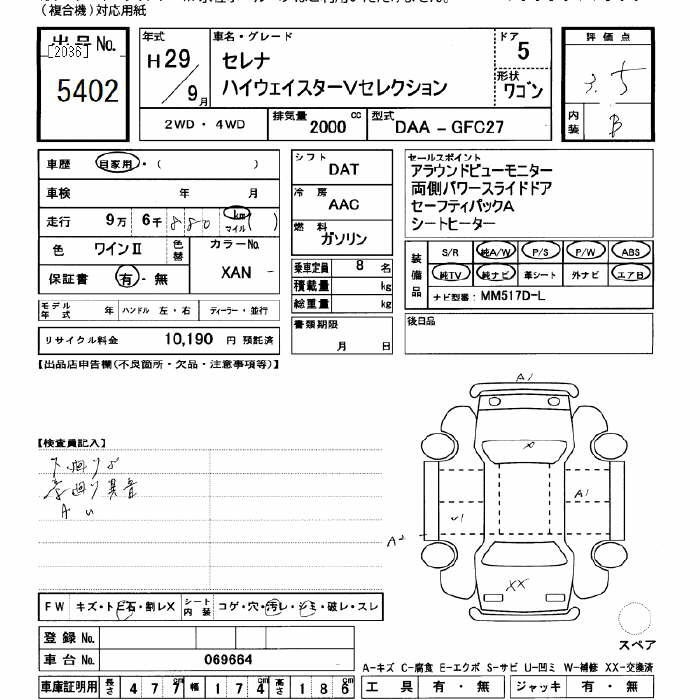 (複合機)対応用紙
出品No.
[2036]
5402
年式
H29
9月
車名・グレード
セレナ
ハイウェイスターVセレクション
ドア
5
形状
ワゴン
2WD・4WD
排気量 2000 cc
型式 DAA - GFC27
評価点
3.5
内装
B
車歴 自家用・( )
車検 年 月
走行 9万 6千 880 km マイル ( )
色 ワインⅡ 色替 カラーNo.
XAN -
保証書 有・無
モデル年式 年 ハンドル 左・右 ディーラー・並行
リサイクル料金 10,190 円 預託済
シフト
DAT
冷房
AAC
燃料
ガソリン
乗車定員 8 名
積載量 kg
総重量 kg
書類期限
月 日
セールスポイント
アラウンドビューモニター
両側パワースライドドア
セーフティパックA
シートヒーター
装備品
S/R 純A/W P/S P/W ABS
純TV 純ナビ 革シート 外ナビ エアB
ナビ型番: MM517D-L
後日品
【出品店申告欄(不良箇所・欠品・注意事項等)】
【検査員記入】
下廻りS
A U
A1
X
A1
U1
A2
XX
スペア
FW キズ・トビ石・割レX シート内装 コゲ・穴・汚レ・シミ・破レ・スレ
登録No.
車台No. 069664
車庫証明用 長さ 477 cm 幅 174 cm 高さ 186 cm
A-キズ C-腐食 E-エクボ S-サビ U-凹ミ W-補修 XX-交換済
工具 有・無 ジャッキ 有・無